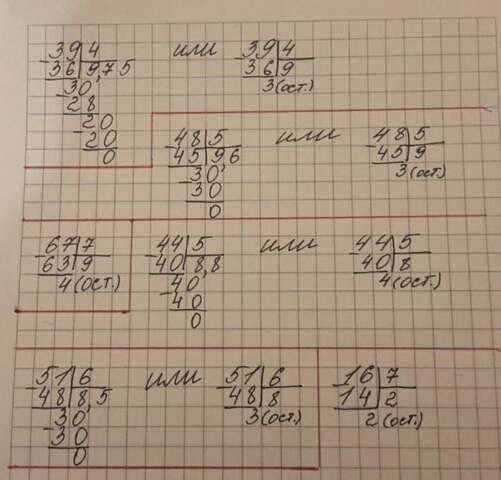 39 | 4 или 39 | 4
36 | 9,75 36 | 9
30 3(ост.)
28
20
20
0
48 | 5 или 48 | 5
45 | 9,6 45 | 9
30 3(ост.)
30
0
67 | 7 44 | 5 или 44 | 5
63 | 9 40 | 8,8 40 | 8
4(ост.) 40 4(ост.)
40
0
51 | 6 или 51 | 6 16 | 7
48 | 8,5 48 | 8 14 | 2
30 3(ост.) 2(ост.)
30
0